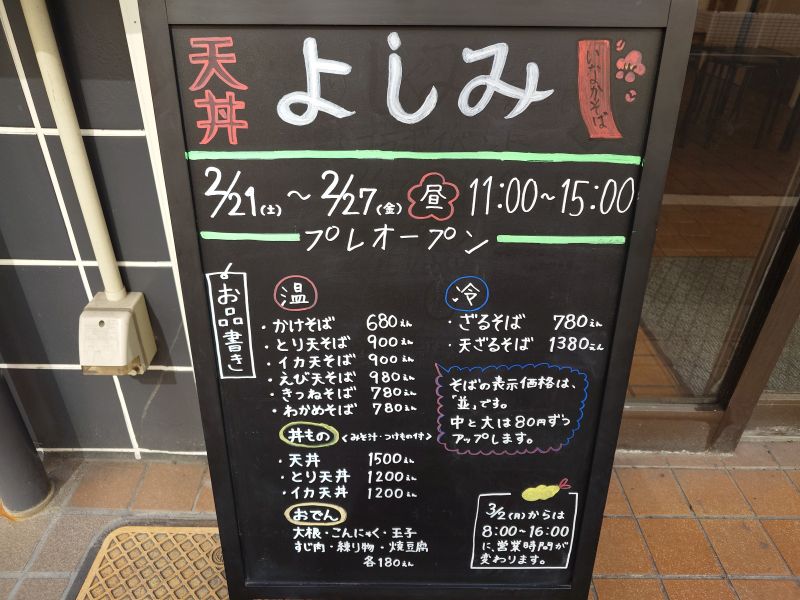 天丼 よしみ いなかそば
2/21(土)～2/27(金) 昼 11:00～15:00
プレオープン
お品書き
温
・かけそば 680えん
・とり天そば 900えん
・イカ天そば 900えん
・えび天そば 980えん
・きつねそば 780えん
・わかめそば 780えん
丼もの 〈みそ汁・つけもの付〉
・天丼 1500えん
・とり天丼 1200えん
・イカ天丼 1200えん
おでん
大根・こんにゃく・玉子
すじ肉・練り物・焼豆腐
各180えん
冷
・ざるそば 780えん
・天ざるそば 1380えん
そばの表示価格は、
「並」です。
中と大は80円ずつ
アップします。
3/2(月)からは
8:00～16:00
に、営業時間が
変わります。